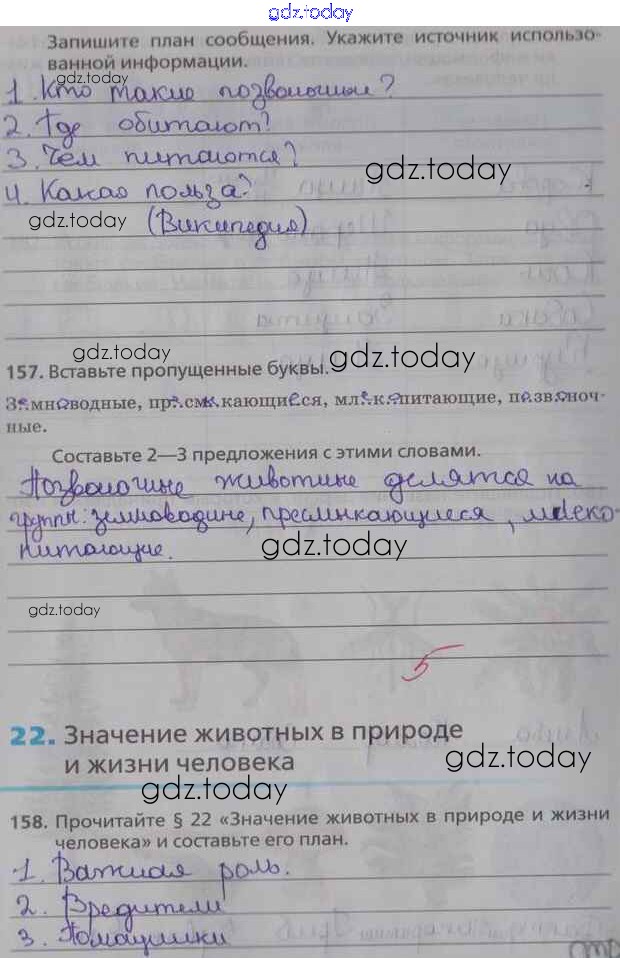 gdz.today
Запишите план сообщения. Укажите источник использо-
ванной информации.
gdz.today
1. Кто такие позвоночные?
2. Где обитают?
3. Чем питаются?
gdz.today
4. Какая польза?
gdz.today
(Википедия)
gdz.today
157. Вставьте пропущенные буквы.
gdz.today
Земноводные, пресмыкающиеся, млекопитающие, позвоноч-
ные.
Составьте 2—3 предложения с этими словами.
Позвоночные животные делятся на
группы: земноводные, пресмыкающиеся, млеко-
питающие.
gdz.today
gdz.today
5
22. Значение животных в природе
и жизни человека
gdz.today
gdz.today
158. Прочитайте § 22 «Значение животных в природе и жизни
человека» и составьте его план.
1. Важная роль.
2. Вредители
3. Помощники